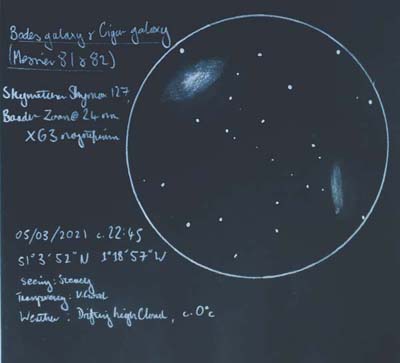 Bodes galaxy & Cigar galaxy
(Messier 81 & 82)
Skywatcher Skymax 127,
Baader Zoom @ 24mm
XG3
05/03/2021 c. 22:45
51° 3' 52" N 1° 18' 57" W
Seeing: Steady
Transparency: V. Good
Weather: Drifting high Cloud, c. 0°c